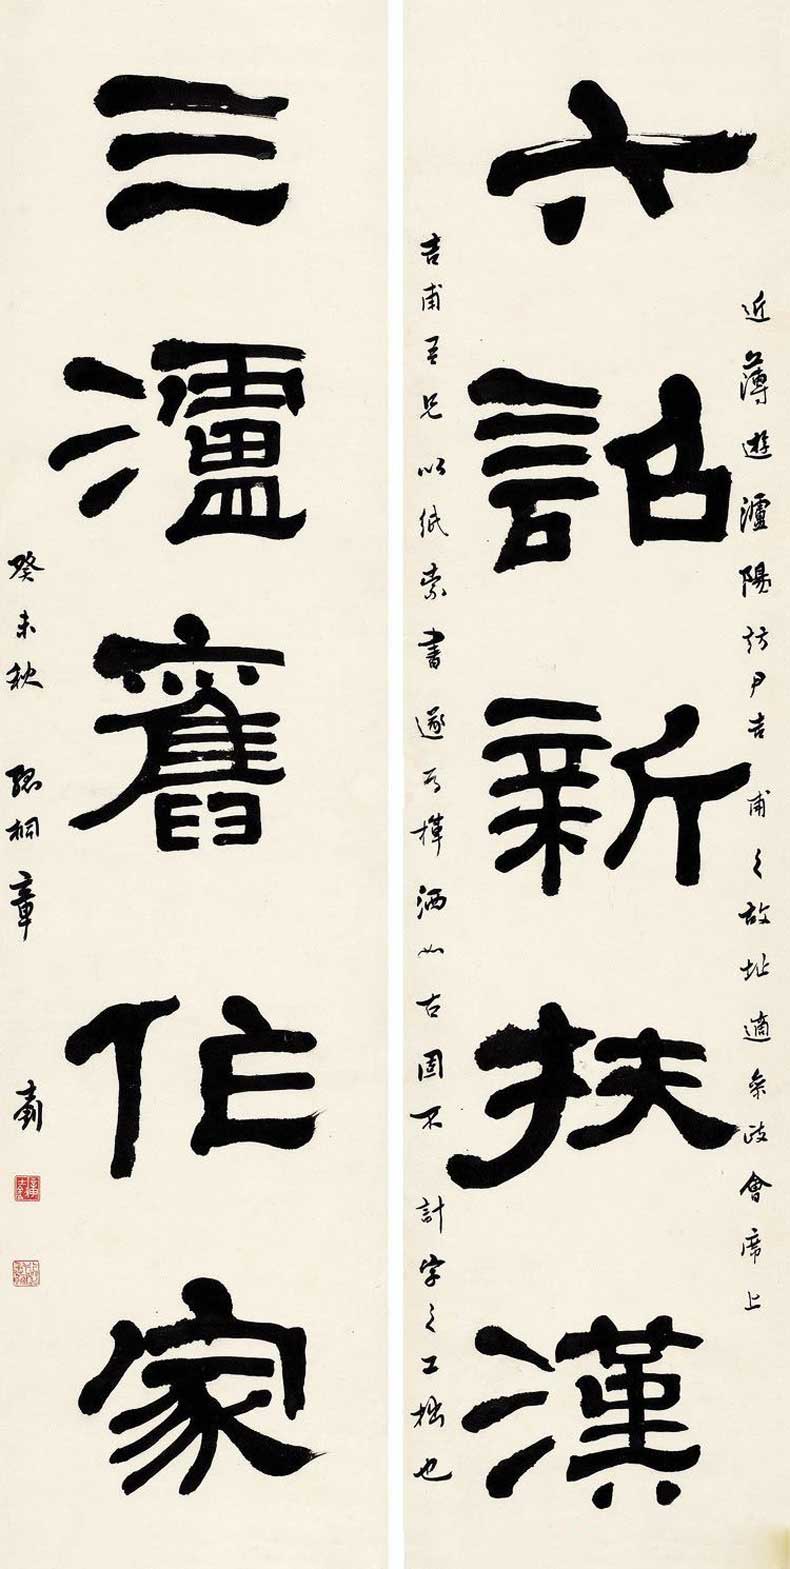 六詔新扶漢
近薄遊瀘陽訪尹吉甫之故址適參政會席上
吉甫吾兄以紙索書遂為揮洒如右固不計字之工拙也
三瀘舊作家
癸未秋 孤桐章 士釗